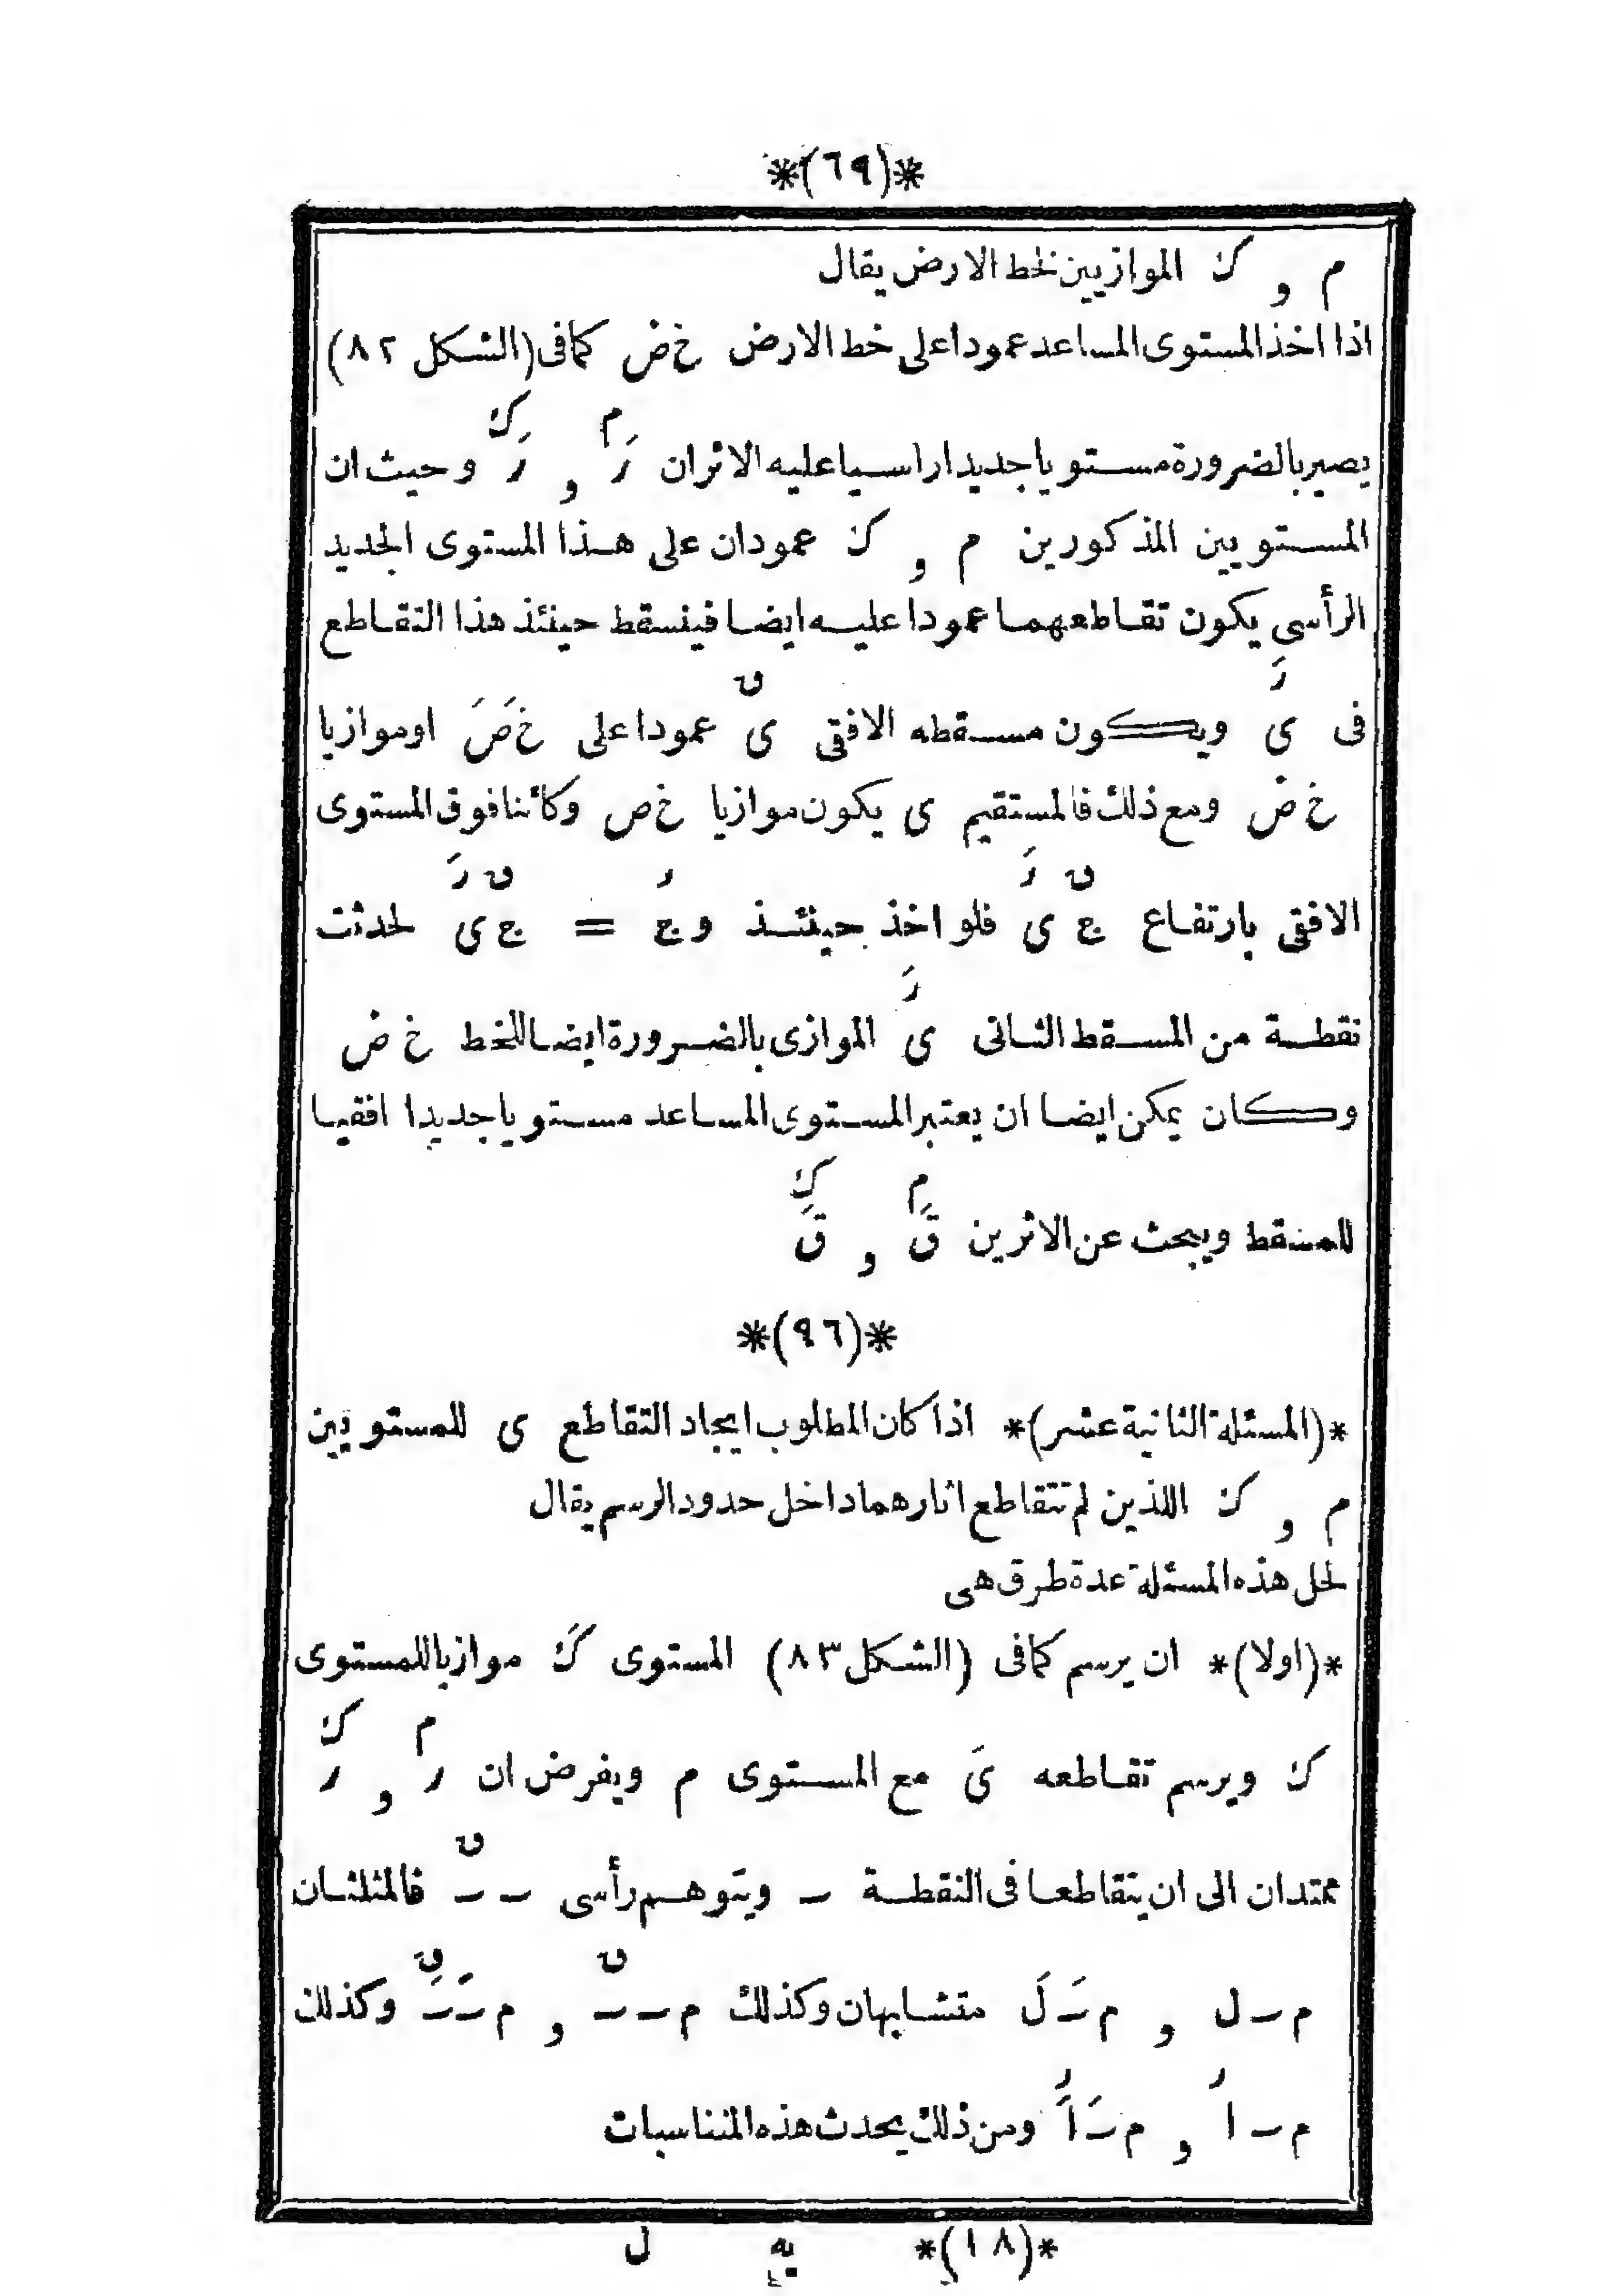 *(٦٩)*
م و ك الموازيين لخط الارض يقال
اذا اخذ المستوى المساعد عمودا على خط الارض خ ض كما فى (الشكل ٨٢)
م ك
يصير بالضرورة مستويا جديدا راسيا عليه الاثران رَ و رَ وحيث ان
المستويين المذكورين م و ك عمودان على هذا المستوى الجديد
الرأسى يكون تقاطعهما عمودا عليه ايضا فينسقط حينئذ هذا التقاطع
رَ ں
فى ى ويكون مسقطه الافقى ى عمودا على خَ صَ او موازيا
خ ض ومع ذلك فالمستقيم ى يكون موازيا خ ض وكائنا فوق المستوى
ں رَ ر ں رَ
الافقى بارتفاع ج ى فلو اخذ حينئذ و ج = ج ى لحدثت
رَ
نقطة من المسقط الثانى ى الموازى بالضرورة ايضا للخط خ ض
وكان يمكن ايضا ان يعتبر المستوى المساعد مستويا جديدا افقيا
م ك
للمسقط ويبحث عن الاثرين قَ و قَ
*(٩٦)*
*(المسئلة الثانية عشر)* اذا كان المطلوب ايجاد التقاطع ى للمستويين
م و ك اللذين لم تتقاطع اثارهما داخل حدود الرسم يقال
لحل هذه المسئلة عدة طرق هى
*(اولا)* ان يرسم كما فى (الشكل ٨٣) المستوى كَ موازيا للمستوى
م ك
ك ويرسم تقاطعه ىَ مع المستوى م ويفرض ان ر و ر
ں
ممتدان الى ان يتقاطعا فى النقطة ـ ويتوهم رأسى ـ ـ فالمثلثان
ں ں
م ـ ل و م ـَ لَ متشابهان وكذلك م ـ ـ و م ـَ ـَ وكذلك
ر ر
م ـ ا و م ـَ اَ ومن ذلك يحدث هذه المتناسبات
*(١٨)* يه ل